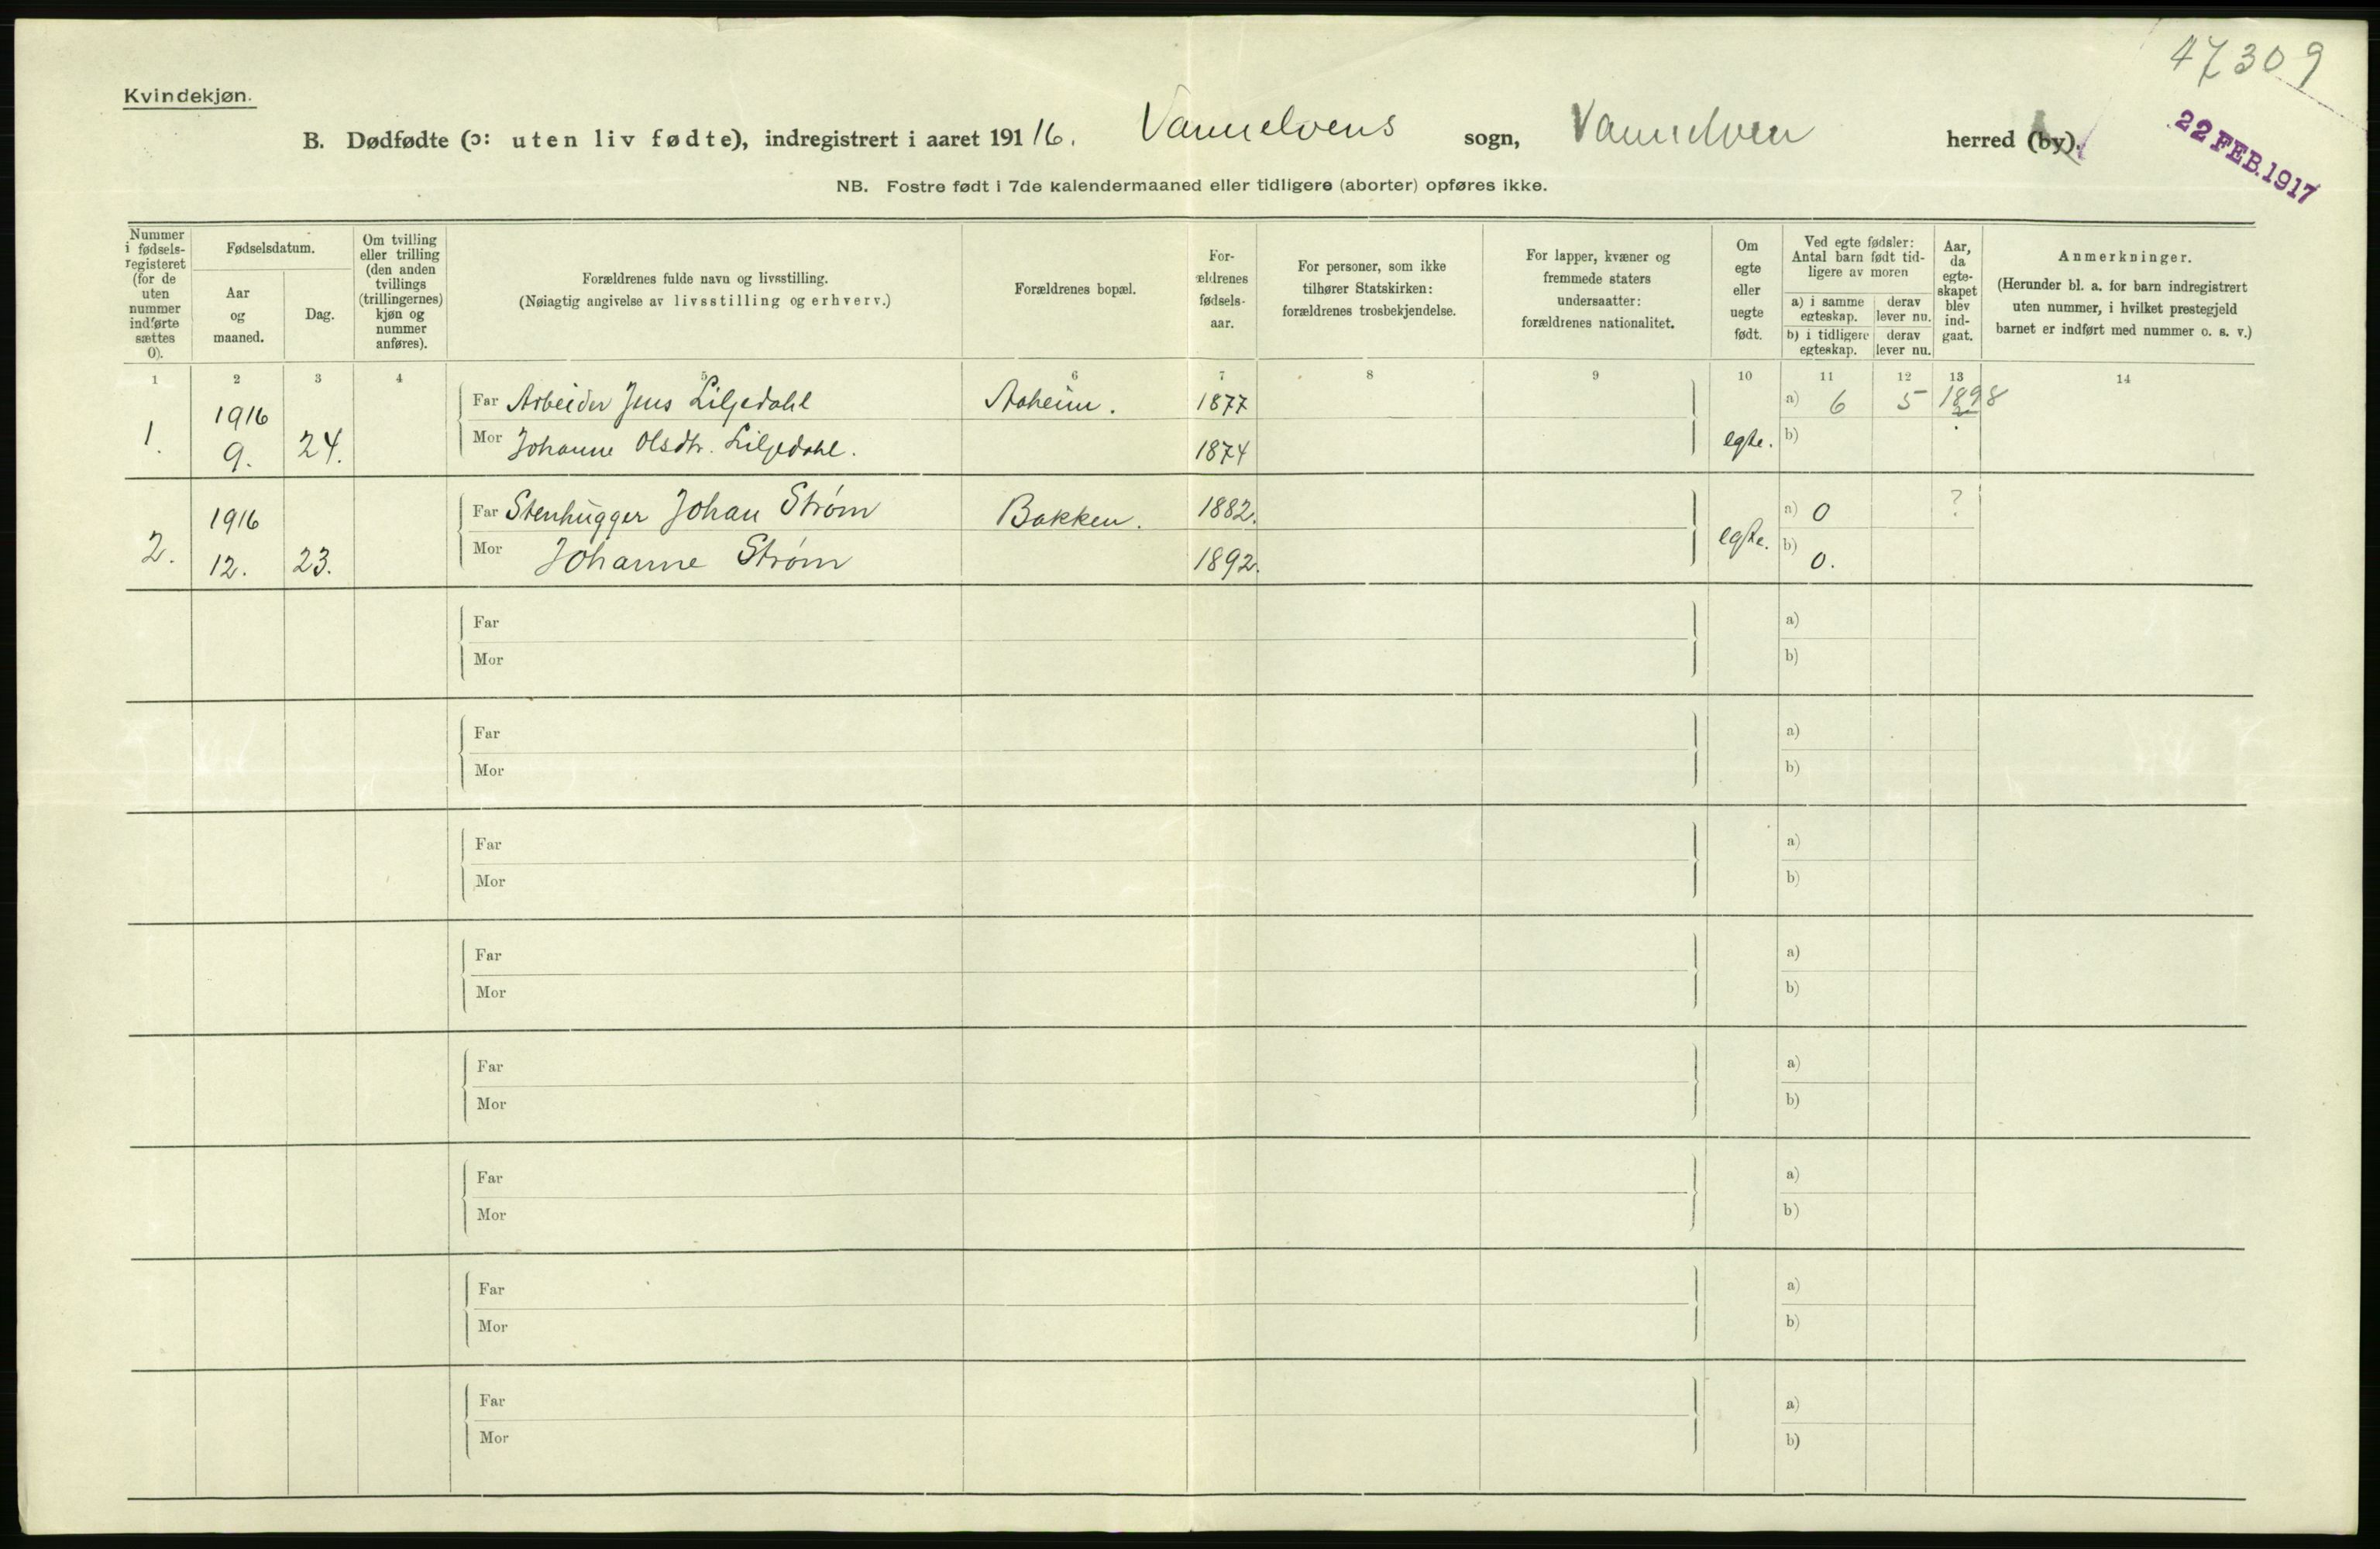 47309
Kvindekjøn.
22 FEB. 1917
B. Dødfødte (ɔ: uten liv fødte), indregistrert i aaret 191 16. Vannelvens sogn, Vannelven herred (by).
NB. Fostre født i 7de kalendermaaned eller tidligere (aborter) opføres ikke.
Nummer i fødsels-registeret (for de uten nummer indførte sættes 0).
Fødselsdatum.
Aar og maaned.
Dag.
Om tvilling eller trilling (den anden tvillings (trillingernes) kjøn og nummer anføres).
Forældrenes fulde navn og livsstilling.
(Nøiagtig angivelse av livsstilling og erhverv.)
Forældrenes bopæl.
For-ældrenes fødsels-aar.
For personer, som ikke tilhører Statskirken: forældrenes trosbekjendelse.
For lapper, kvæner og fremmede staters undersaatter: forældrenes nationalitet.
Om egte eller uegte født.
Ved egte fødsler: Antal barn født tid-ligere av moren
a) i samme egteskap.
derav lever nu.
b) i tidligere egteskap.
derav lever nu.
Aar, da egte-skapet blev ind-gaat.
Anmerkninger.
(Herunder bl. a. for barn indregistrert uten nummer, i hvilket prestegjeld barnet er indført med nummer o. s. v.)
1 2 3 4 5 6 7 8 9 10 11 12 13 14
1. 1916 9. 24. Far Arbeider Jens Liljedahl Aaheim. 1877 egte. a) 6 5 1898
Mor Johanne Olsdtr. Liljedahl. 1874 b)
2. 1916 12. 23. Far Stenhugger Johan Strøm Bakken. 1882. egte. a) 0 ?
Mor Johanne Strøm 1892. b) 0.
Far a)
Mor b)
Far a)
Mor b)
Far a)
Mor b)
Far a)
Mor b)
Far a)
Mor b)
Far a)
Mor b)
Far a)
Mor b)
Far a)
Mor b)